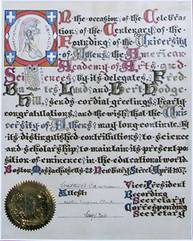 In the occasion of the Celebra
tion, of the Centenary of the
Founding of the University
of Athens, the American
Academy of Arts and
Sciences, by its delegates, Fred
Lund and Bert Hodge
Hill, sends cordial greetings, hearty
congratulations, and the wish, that the Univer
sity of Athens may long continue, by
its distinguished contributions, to science
and scholarship, to maintain its present pro
osition of eminence, in the educational world
Boston, Massachusetts 28 Newbury Street April 1937.
Attest
Vice President
Recording
Secretary
Corresponding
Secretary